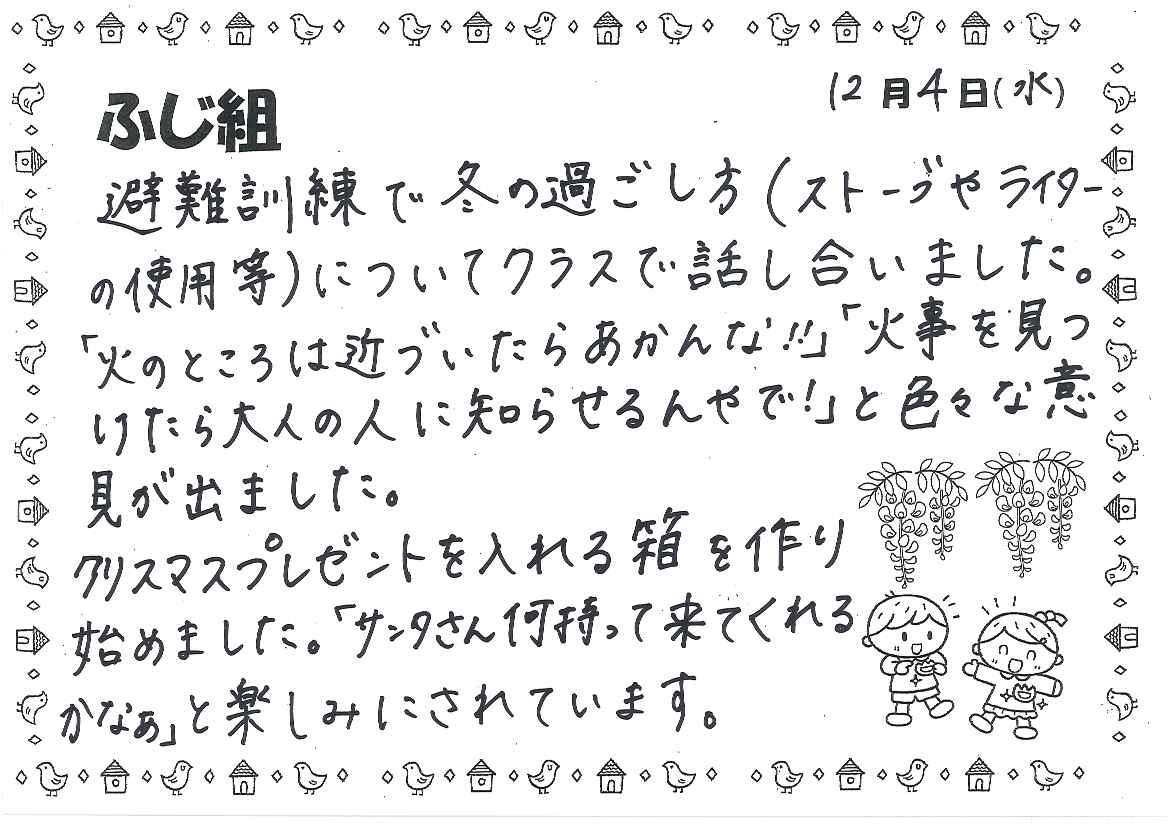 12月4日(水)
ふじ組
避難訓練で冬の過ごし方(ストーブやライター
の使用等)についてクラスで話し合いました。
「火のところは近づいたらあかんな!!」「火事を見つ
けたら大人の人に知らせるんやで!」と色々な意
見が出ました。
クリスマスプレゼントを入れる箱を作り
始めました。「サンタさん何持って来てくれる
かなぁ」と楽しみにされています。